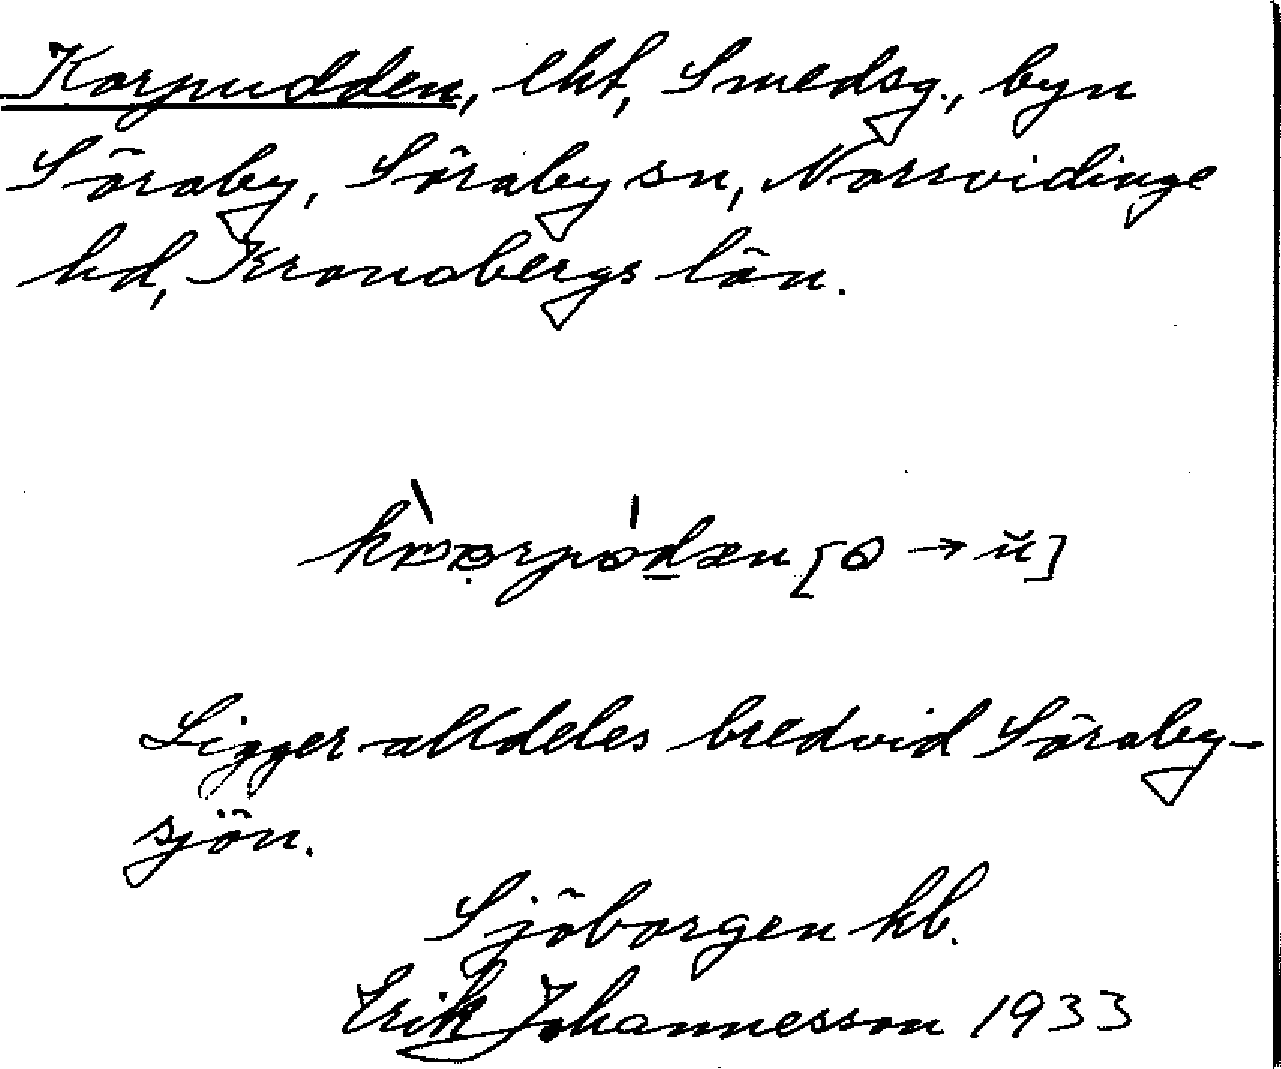 Korpudden, lht, Smedsg., byn
Söraby, Söraby sn, Norrvidinge
hd, Kronobergs län.
Ligger alldeles bredvid Söraby-
sjön.
Sjöborgen hb.
Erik Johannesson 1933